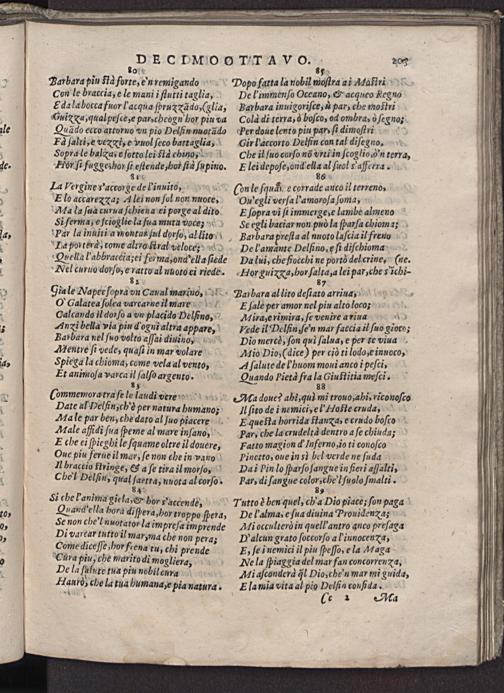 DECIMOOTTAVO.
203
80
Barbara piu stà forte, e'n remigando
Con le braccia, e le mani i flutti taglia,
E da la bocca fuor l'acqua spruzzādo,
Guizza, qual pesce, e par, che ogn'hor piu va
Quādo ecco attorno vn pio Delfin nuotādo
Fà salti, e vezzi, e vuol seco battaglia,
Sopra le balza, e sotto lei stà chino,
Hor si fugge, hor si estende, hor stà supino.
81
La Vergine s'accorge de l'inuito,
E lo accarezza; A lei non sol non nuoce,
Ma la sua curua schiena ei porge al dito
Si ferma, e scioglie la sua muta voce;
Par la inuiti a montar sul dorso, al lito
La porterà, come altro stral veloce;
Quella l'abbraccia; ei ferma, ond'ella siede
Nel curuo dorso, e ratto al nuoto ei riede.
82
Gia le Napee soprà vn Caual marino,
O' Galatea solea varcarne il mare
Calcando il dorso a vn placido Delfino,
Anzi bella via piu d'ogni altra appare,
Barbara nel suo volto assai diuino,
Mentre si vede, quasi in mar volare
Spiega la chioma, come vela al vento,
Et animosa varca il salso argento.
83
Commemorar se le laudi vere
Date al Delfin, ch'è per natura humano;
Ma le par ben, che dato al suo piacere
Male affidi sua speme al mare insano,
E che ei spieghi le squame oltre il douere,
Oue piu ferue il mar, se non che in vano
Il braccio stringe, & a se tira il morso,
Che'l Delfin, qual saetta, nuota al corso.
84
Si che l'anima giela, & hor s'accende,
Quand'ella hora dispera, hor troppo spera,
Se non che'l nuotator la impresa imprende
Di varcar tutto il mar, ma che non pera;
Come dicesse, hor frena tu, chi prende
Cura piu, che marito di mogliera,
De la salute tua piu nobil cura
Haurò, che la tua humana, e pia natura.
85
Dopo fatta la nobil mostra a i Mostri
De l'immenso Oceano, & acqueo Regno
Barbara inuigorisce, ù par, che mostri
Colà di terra, ò bosco, od ombra, ò segno;
Per doue lento piu par, si dimostri
Gir l'accorto Delfin con tal disegno,
Che il suo corso nō vrti in scoglio, ò'n terra,
E lei depose, ond'ella al suol s'afferra.
86
Con le squā. e corrade anco il terreno,
Qu'egli versa l'amorosa soma,
E sopra vi si immerge, e lambe almeno
Se egli baciar non può la sparsa chioma;
Barbara presta al nuoto lascia il freno
De l'amante Delfino, e si dischioma
Da lui, che fiocchi ne portò del crine,
Hor guizza, hor salza, a lei par, che s'ichi-
87
Barbara al lito desiato arriua,
E sale per amor nel piu alto loco;
Mira, e rimira, se venire a riua
Vede il Delfin, se'n mar faccia il suo gioco;
Dio mercè, son qui salua, e per te viua
Mio Dio, (dice) per ciò ti lodo, e inuoco,
A salute de l'huom moui anco i pesci,
Quando Pietà fra la Giustitia mesci.
88
Ma doue? ahi, quì mi trouo, ahi, riconosco
Il sito de i nemici, e l'Hoste cruda,
E questa horrida stanza, e crudo bosco
Par, che la crudeltà dentro a se chiuda;
Fatto magion d'Inferno, io ti conosco
Pinetto, oue in sì bel verde ne suda
Da i Pin lo sparso sangue in fieri assalti,
Par, di sangue color, che'l suolo smalti.
89
Tutto è ben quel, ch'a Dio piace; son paga
De l'alma, e sua diuina Prouidenza;
Mi occulterò in quell'antro anco presaga
D'alcun grato soccorso a l'innocenza,
E, se i nemici il piu spesso, e la Maga
Ne la spiaggia del mar fan concorrenza,
Mi asconderà ql Dio, che'n mar mi guida,
E la mia vita al pio Delfin confida.
Cc 2 Ma